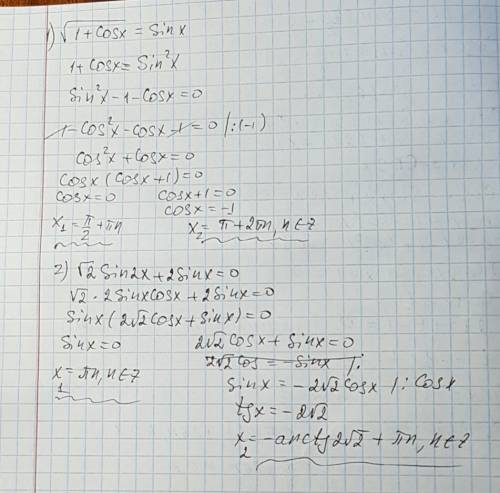 1) √1+cosx = sinx
1+cosx = sin²x
sin²x-1-cosx=0
1-cos²x-cosx-1=0 |:(-1)
cos²x+cosx=0
cosx(cosx+1)=0
cosx=0 cosx+1=0
cosx=-1
x₁=π/2+πn x₂=π+2πn, n∈z
2) √2 sin2x+2sinx=0
√2·2sinxcosx+2sinx=0
sinx(2√2cosx+sinx)=0
sinx=0 2√2cosx+sinx=0
2√2cos=-sinx |:
x₁=πn, n∈z sinx=-2√2cosx |:cosx
tgx=-2√2
x₂=-arctg2√2+πn, n∈z